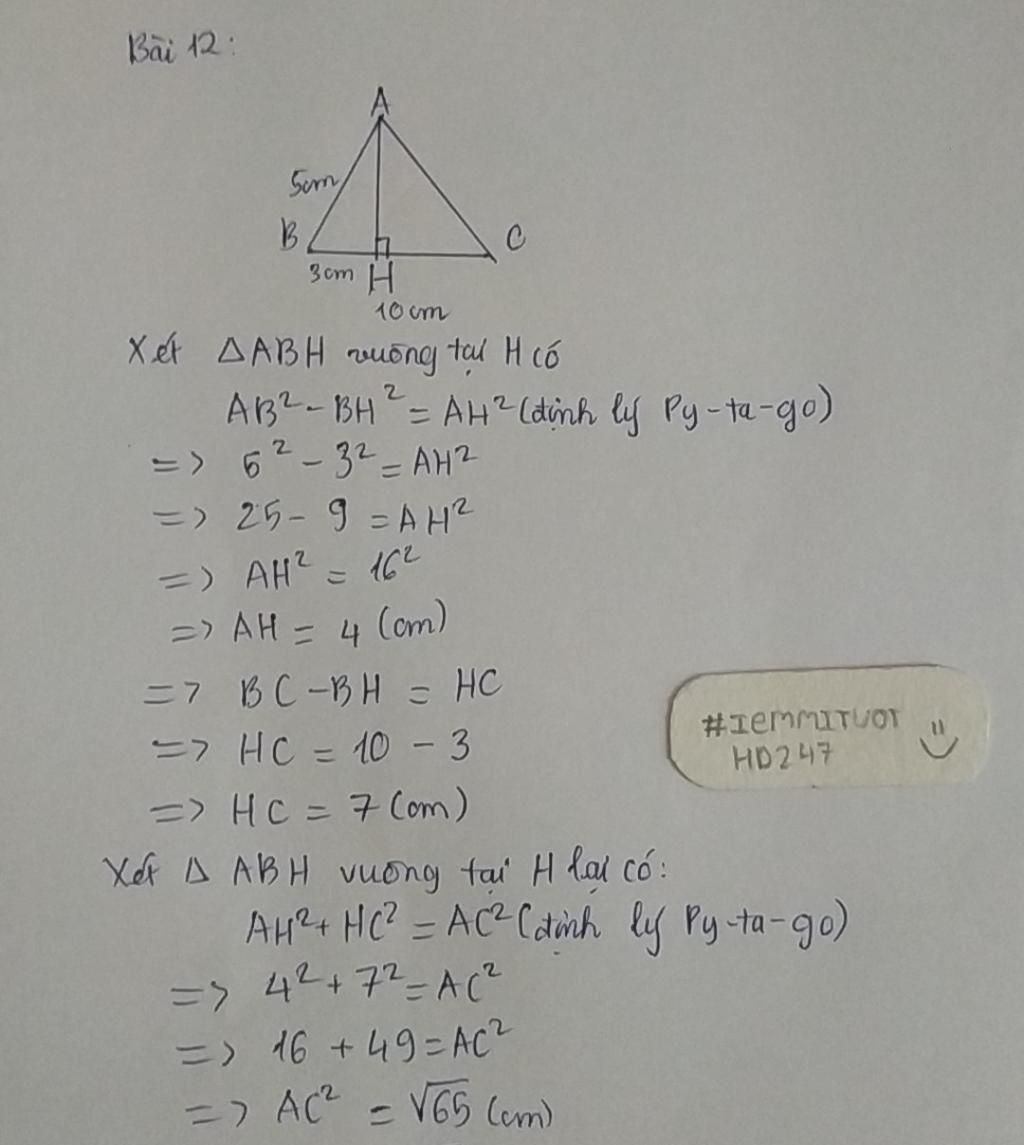 Bài 12:
A
5cm
B
C
3cm H
10cm
Xét △ABH vuông tại H có
AB² - BH² = AH² (định lý Py-ta-go)
=> 5² - 3² = AH²
=> 25 - 9 = AH²
=> AH² = 16²
=> AH = 4 (cm)
=> BC - BH = HC
=> HC = 10 - 3
=> HC = 7 (cm)
#IEMMITUOT
HD247
Xét △ ABH vuông tại H lại có:
AH² + HC² = AC² (định lý Py-ta-go)
=> 4² + 7² = AC²
=> 16 + 49 = AC²
=> AC² = √65 (cm)